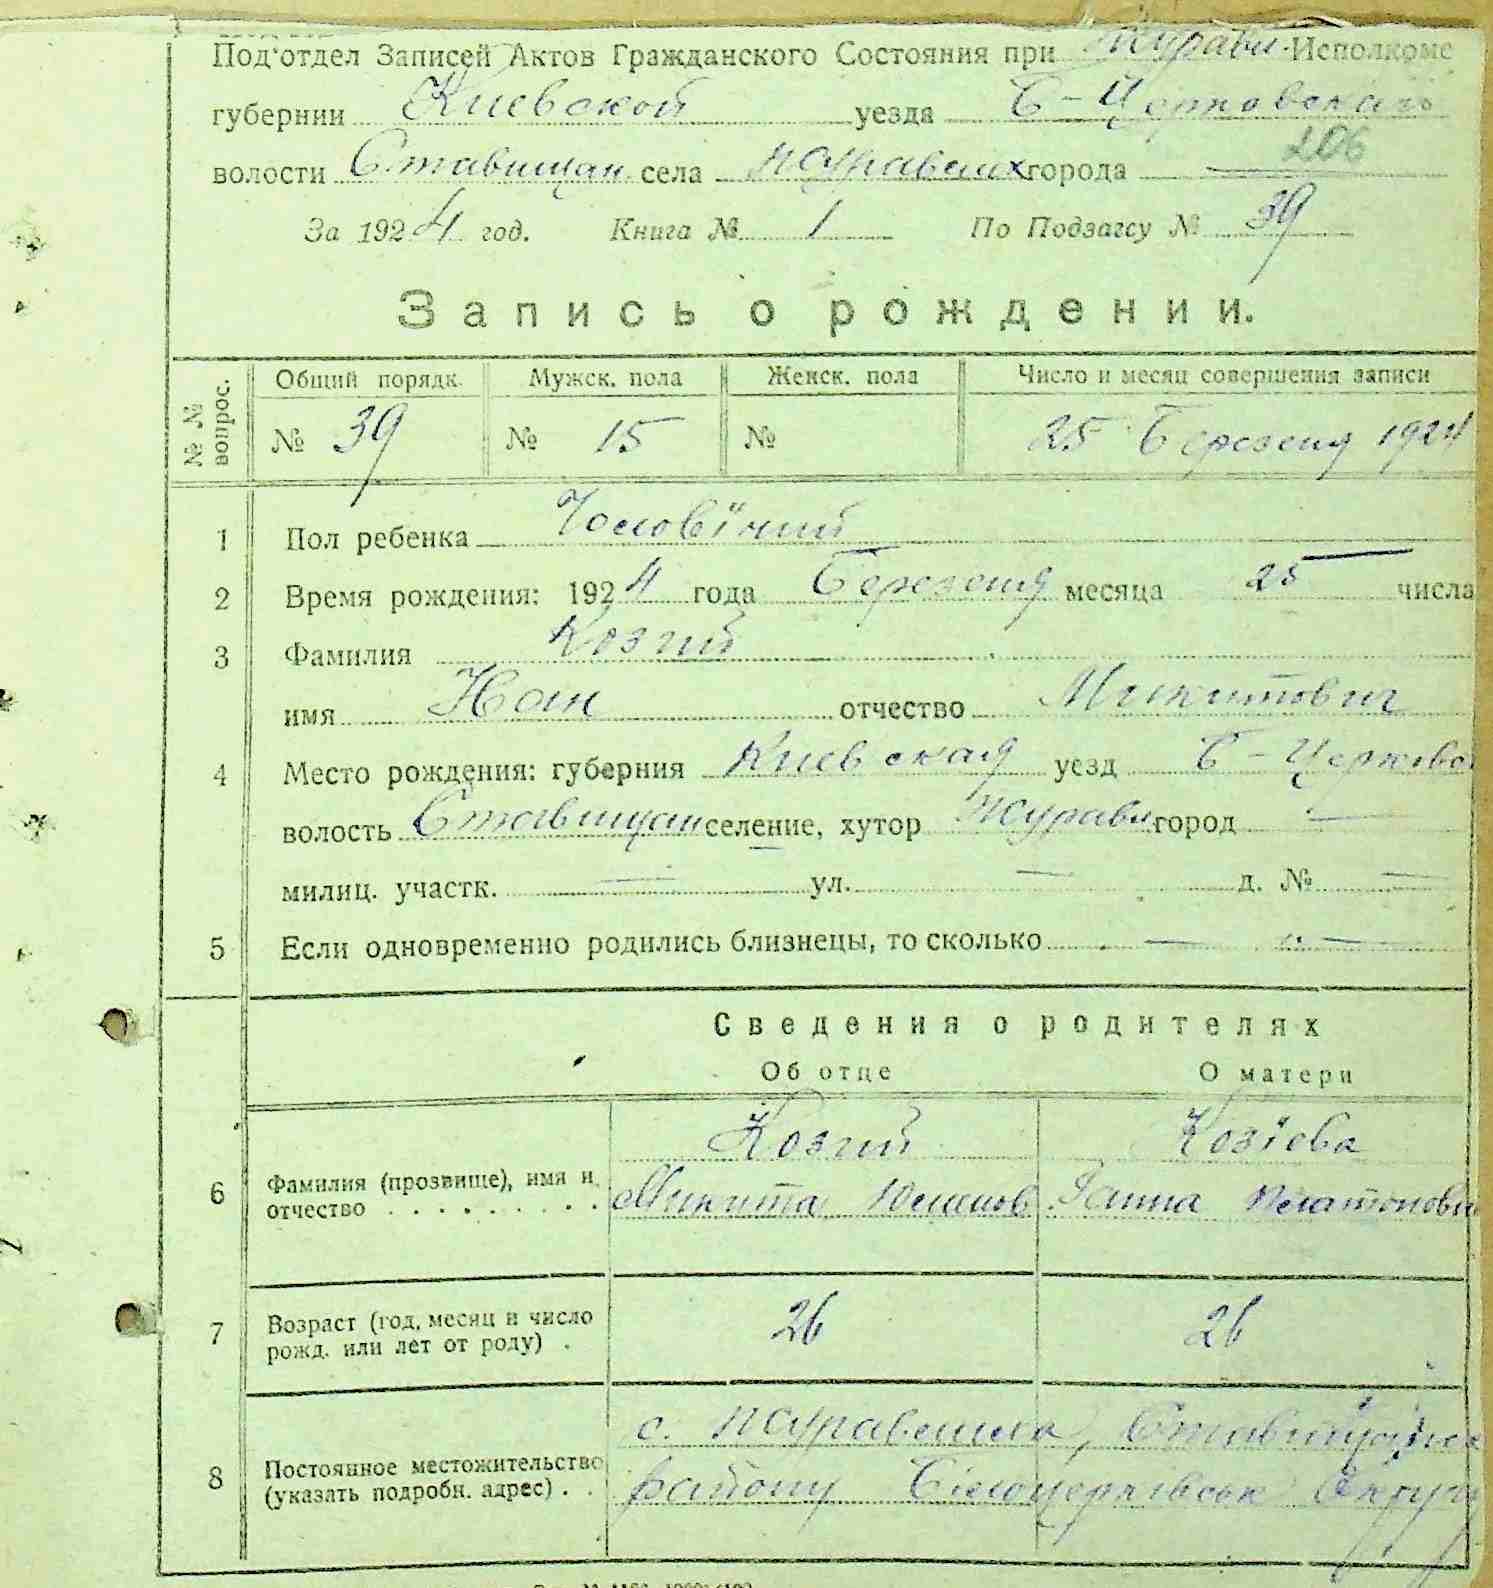 Под'отдел Записей Актов Гражданского Состояния при Журавл. Исполкоме
губернии Киевской уезда Б-Церковского
волости Ставищан села Журавлих города —
206
За 1924 год. Книга № 1 По Подзагсу № 39
Запись о рождении.
№ № вопрос. Общий порядк. Мужск. пола Женск. пола Число и месяц совершения записи
№ 39 № 15 № 25 Березеня 1924
1 Пол ребенка Чоловічий
2 Время рождения: 1924 года Березеня месяца 25 числа
3 Фамилия Козий
имя Иван отчество Микитович
4 Место рождения: губерния Киевская уезд Б-Церковс
волость Ставищан селение, хутор Журавл. город —
милиц. участк. — ул. — д. № —
5 Если одновременно родились близнецы, то сколько — " —
Сведения о родителях
Об отце О матери
Козий Козієва
6 Фамилия (прозвище), имя и отчество . . . . . . . . . Микита Юлианов Ганна Платонови
7 Возраст (год, месяц и число рожд. или лет от роду) . 26 26
8 Постоянное местожительство (указать подробн. адрес) . . с. Журавлиха, Ставищанск
району Білоцерківськ Округу